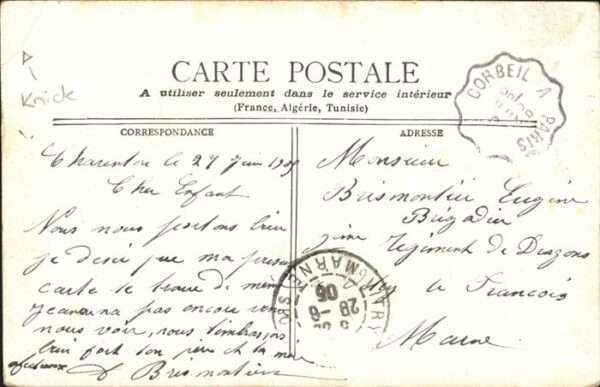 CARTE POSTALE
A utiliser seulement dans le service intérieur
(France, Algérie, Tunisie)
Knick
CORBEIL A PARIS
CORRESPONDANCE
Charenton le 27 Juin 1905
Cher Enfant
Nous nous portons bien
je désir que ma présen
carte te trouve de mem
Jeanne na pas encore venu
nous voir, nous t'embrassons
bien fort ton père et ta mère
Brismontier
ADRESSE
Monsieur
Brismontier Eugène
Brigadier
Régiment de Dragons
le François
Marne
VITRY
MARNE
28 -6
05